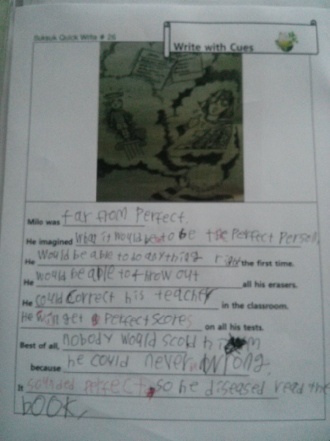 Suksuk Quick Write # 26
Write with Cues
Milo was far from Perfect
He imagined what it would be to be the perfect person
He would be able to do anything right the first time.
He would be able to throw out all his erasers.
He could correct his teacher in the classroom.
He get Perfect scores on all his tests.
Best of all, nobody would scold him
because he could never wrong.
It sounded perfect, so he diseased read the
book.